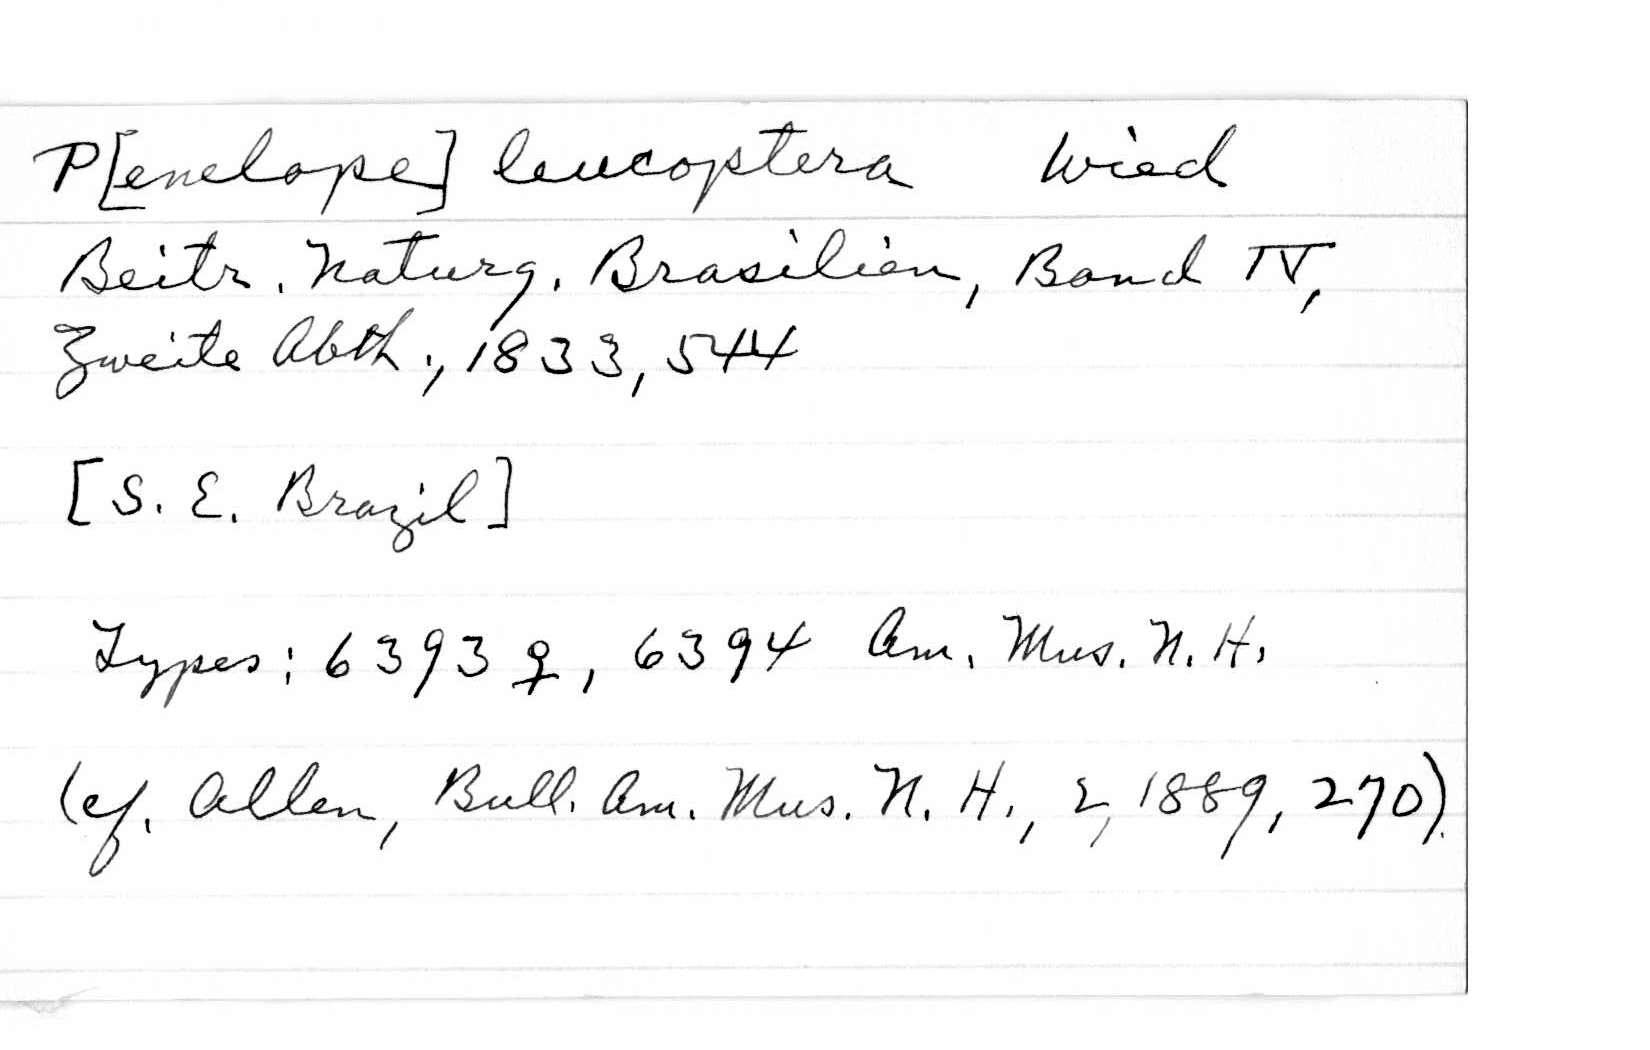 P[enelope] leucoptera Wied
Beitr. Naturg. Brasilien, Band IV,
Zweite Abth., 1833, 544
[S. E. Brazil]
Types: 6393 ♀, 6394 Am. Mus. N. H.
(cf. Allen, Bull. Am. Mus. N. H., 2, 1889, 270).